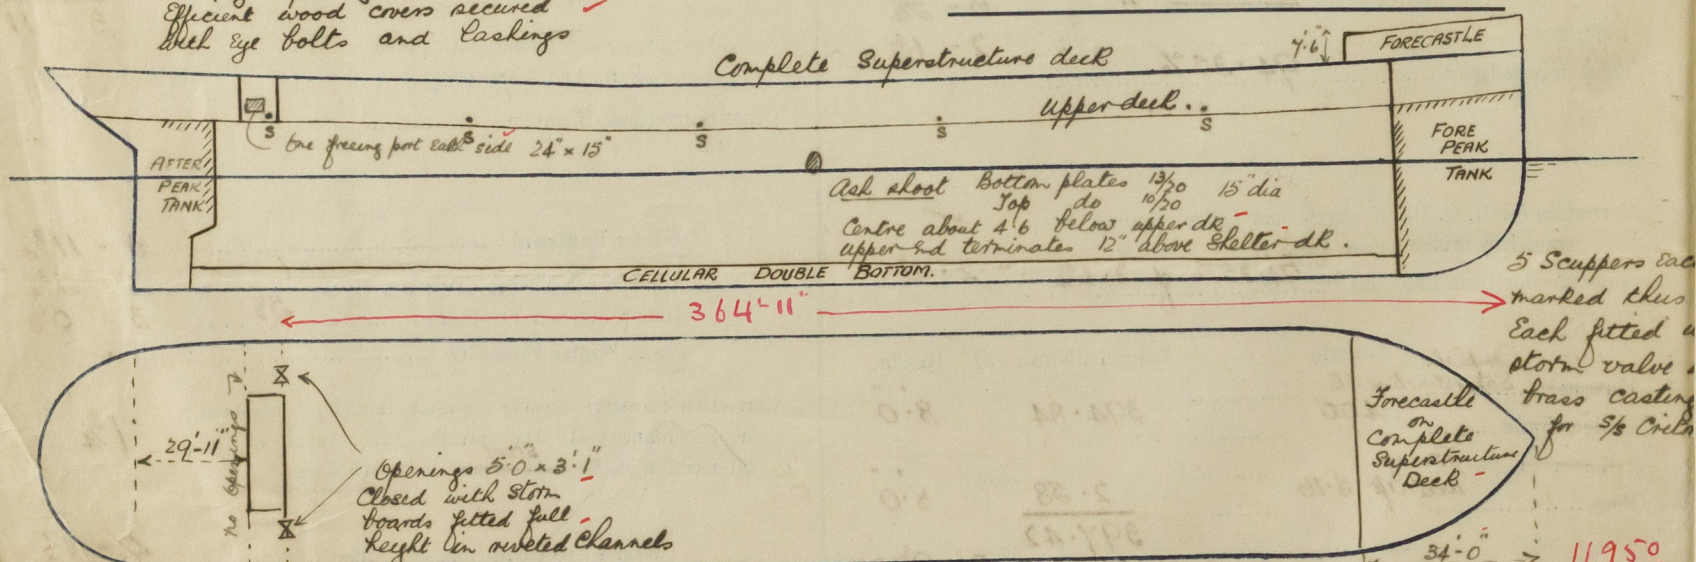 Efficient wood covers secured
with Eye bolts and lashings
Complete Superstructure deck
7'.6"
FORECASTLE
Upper deck.
S
S
S
S
S
One freeing port Each side 24" x 15"
FORE
PEAK
TANK
AFTER
PEAK
TANK
Ash shoot Bottom plates 13/20 15" dia
Top do 10/20
Centre about 4.6 below upper dk
upper End terminates 12" above Shelter dk.
CELLULAR DOUBLE BOTTOM.
364'-11"
5 Scuppers Eac
marked thus
Each fitted
storm valve
brass casting
for S/S
29'-11"
No Openings
Openings 5'.0 x 3'.1"
Closed with Storm
boards fitted full
height in riveted Channels
Forecastle
on
Complete
Superstructure
Deck
34'-0"
11950